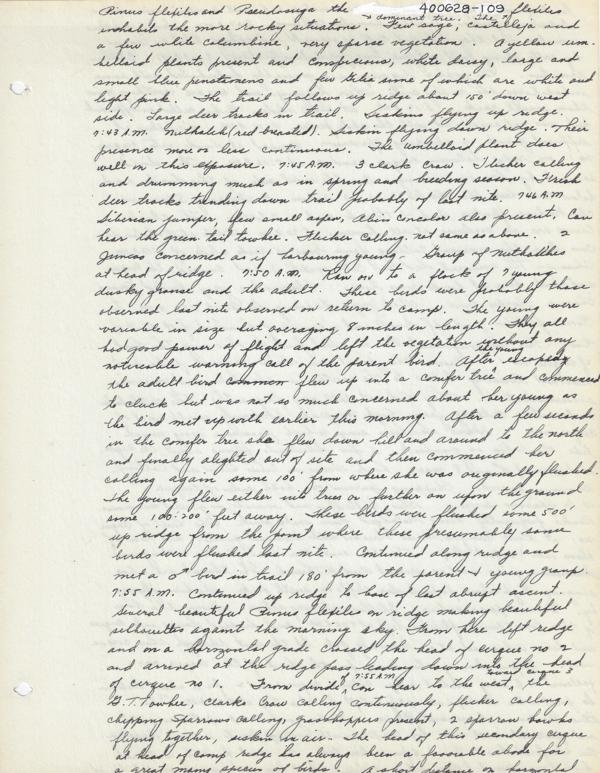 400628-109
Pinus flexilis and Pseudosuga the dominant tree. The P. flexilis
inhabits the more rocky situations. Few sage, castelleja and
a few white columbine, very sparse vegetation. A yellow um-
belloid plants present and conspicuous, white daisy, large and
small blue penstemons and few gilia some of which are white and
light pink. The trail follows up ridge about 150' down west
side. Large deer tracks in trail. Siskins flying up ridge.
7:43 A.M. Nuthatch (red breasted). Siskin flying down ridge. Their
presence more or less continuous. The umbelloid plant does
well on this exposure. 7:45 A.M. 3 clark Crow. Flicker calling
and drumming much as in spring and breeding season. Fresh
deer tracks trending down trail probably of last nite. 7:46 A.M
Siberian juniper, few small aspen, Abies concolor also present, Can
hear the green tail towhee. Flicker calling. not same as above. 2
Juncos concerned as if harbouring young. Group of Nuthatches
at head of ridge. 7:50 A.M. Ran on to a flock of 7 young
dusky grouse and the adult. These birds were probably those
observed last nite observed on return to camp. The young were
variable in size but averaging 8 inches in length. They all
had good power of flight and left the vegetation without any
noticeable warning call of the parent bird. After the young escaping
the adult bird common flew up into a conifer tree and commenced
to cluck but was not so much concerned about her young as
the bird met up with earlier this morning. After a few seconds
in the conifer tree she flew down hill and around to the north
and finally alighted out of site and then commenced her
calling again some 100' from where she was originally flushed.
The young flew either into trees or farther on upon the ground
some 100-200' feet away. These birds were flushed some 500'
up ridge from the point where these presumably same
birds were flushed last nite. Continued along ridge and
met a ♂ bird in trail 180' from the parent + young group.
7:55 A.M. Continued up ridge to base of last abrupt ascent.
Several beautiful Pinus flexiles on ridge making beautiful
silhouttes against the morning sky. From here left ridge
and on a horizontal grade crossed the head of cirque no 2
and arrived at the ridge pass leading down into the head
of cirque no 1. From divide at 7:55 A.M can hear to the west, toward cirque 3 the
G.T. Towhee, Clarks Crow calling continuously, flicker calling,
chipping sparrows calling, grasshoppers present, 2 sparrow hawks
flying together, siskin in air. The head of this secondary cirque
at head of camp ridge has always been a favorable abode for
a great many species of birds. A short distance on horizontal